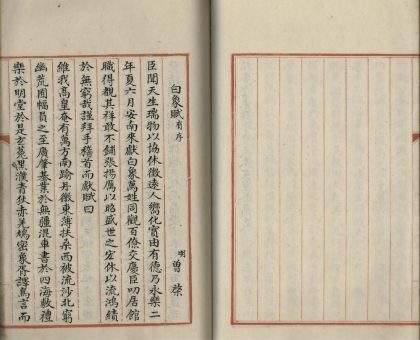 白象賦有序
明 曾棨
臣聞天生瑞物以協休徵遠人嚮化實由有德乃永樂二
年夏六月安南來獻白象萬姓同觀百僚交慶臣叨居館
職得覩其祥敢不鋪張揚厲以昭盛世之宏休以流鴻績
於無窮哉謹拜手稽首而獻賦曰
維我髙皇奄有萬方南踰丹徼東薄扶桑西被流沙北窮
幽荒囿幅員之至廣肇基業於無疆混車書於四海敷禮
樂於明堂於是玄菟黒濊青狄赤羌鳩蠻象胥譯寓言而